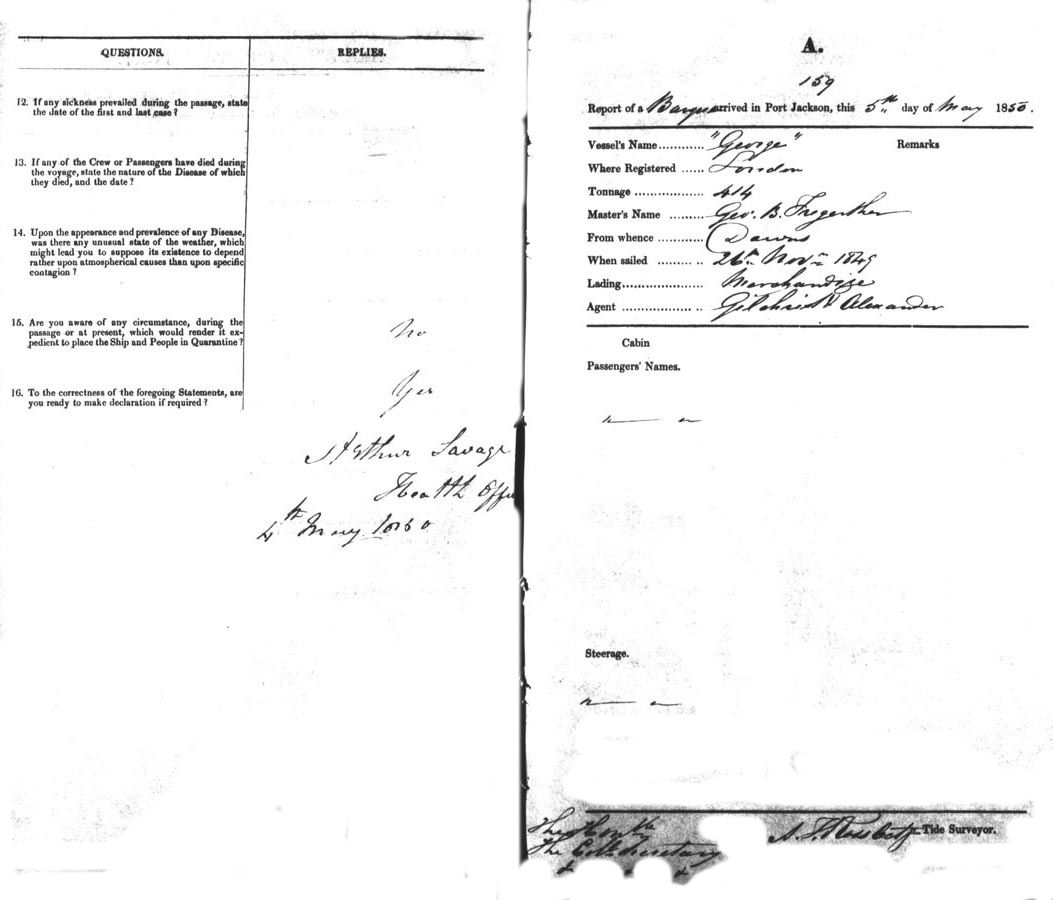 QUESTIONS. REPLIES.
12. If any sickness prevailed during the passage, state
the date of the first and last case ?
13. If any of the Crew or Passengers have died during
the voyage, state the nature of the Disease of which
they died, and the date ?
14. Upon the appearance and prevalence of any Disease,
was there any unusual state of the weather, which
might lead you to suppose its existence to depend
rather upon atmospherical causes than upon specific
contagion ?
15. Are you aware of any circumstance, during the
passage or at present, which would render it ex-
pedient to place the Ship and People in Quarantine ?
No
16. To the correctness of the foregoing Statements, are
you ready to make declaration if required ?
Yes
Arthur Savage
Health Offi
4th May 1850
A.
159
Report of a Barque arrived in Port Jackson, this 5th day of May 1850.
Vessel's Name............ "George" Remarks
Where Registered ...... London
Tonnage .................. 414
Master's Name ......... Geo. B.
From whence ............ Downs
When sailed ......... .. 26th Novr 1849
Lading..................... Merchandize
Agent .................. .. Gilchrist & Alexander
Cabin
Passengers' Names.
Steerage.
Tide Surveyor.
The Honble
The Col. Secretary